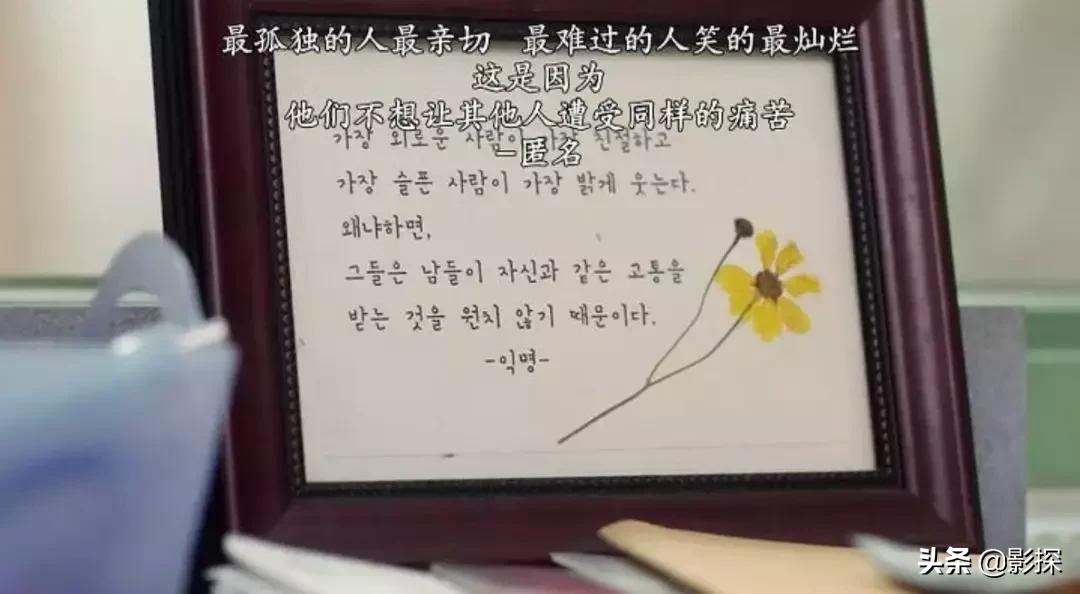 最孤独的人最亲切 最难过的人笑的最灿烂
这是因为
他们不想让其他人遭受同样的痛苦
-匿名
가장 외로운 사람이 가장 친절하고
가장 슬픈 사람이 가장 밝게 웃는다.
왜냐하면,
그들은 남들이 자신과 같은 고통을
받는 것을 원치 않기 때문이다.
-익명-
头条 @影探